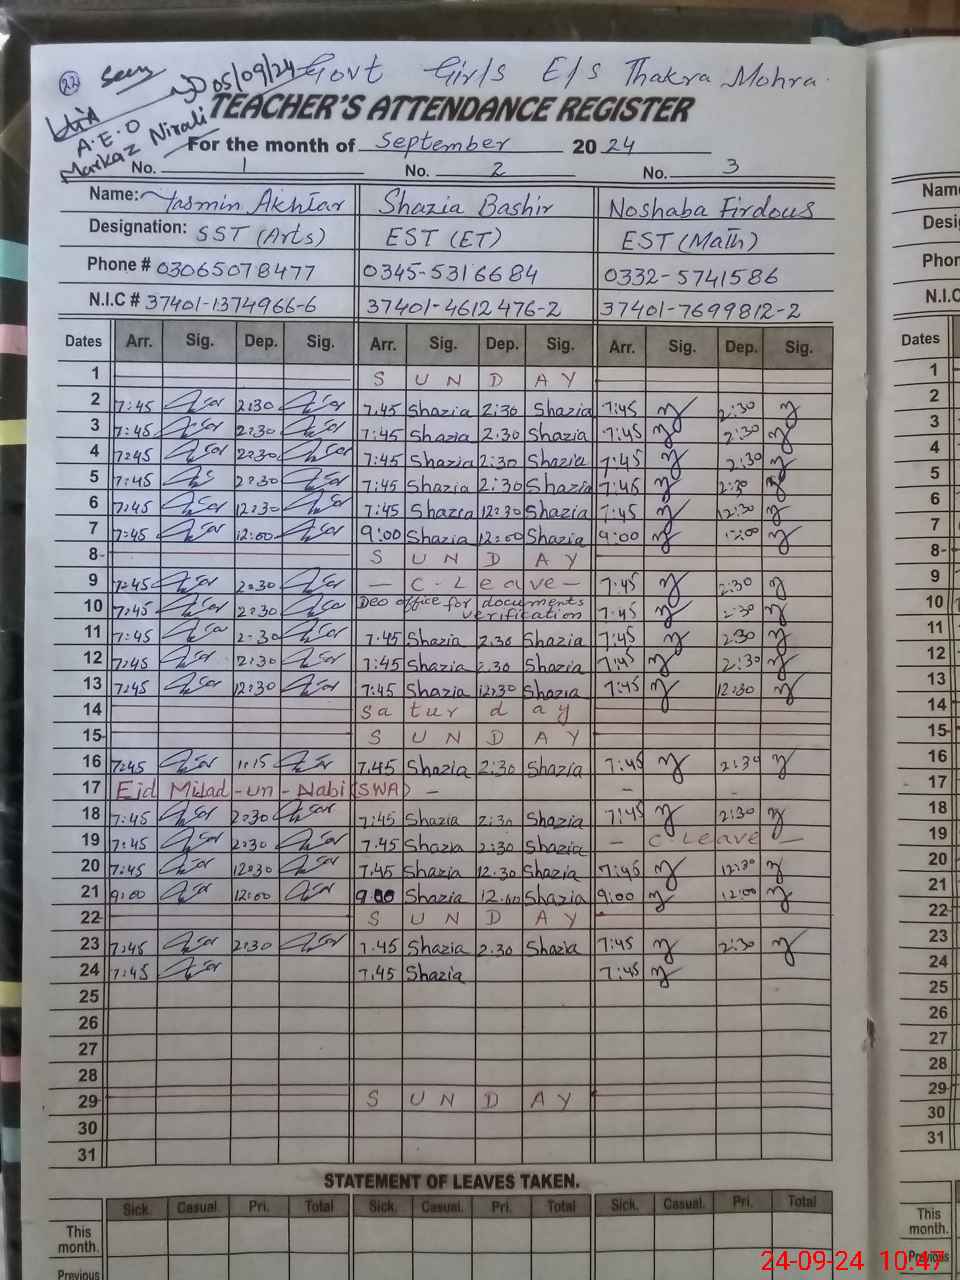 22 Seen 05/09/24 Govt Girls E/s Thakra Mohra.
TEACHER'S ATTENDANCE REGISTER
A.E.O
Markaz Nirali
For the month of September 2024
No. 1 No. 2 No. 3
Name: Yasmin Akhtar Shazia Bashir Noshaba Firdous
Designation: SST (Arts) EST (ET) EST (Math)
Phone # 03065078477 0345-5316684 0332-5741586
N.I.C # 37401-1374966-6 37401-4612476-2 37401-7699812-2
Dates Arr. Sig. Dep. Sig. Arr. Sig. Dep. Sig. Arr. Sig. Dep. Sig.
1 SUNDAY
2 7:45 2:30 7.45 Shazia 2:30 Shazia 7:45 2:30
3 7:45 2:30 7:45 Shazia 2.30 Shazia 7:45 2:30
4 7:45 2:30 7:45 Shazia 2:30 Shazia 7:45 2:30
5 7:45 2:30 7:45 Shazia 2:30 Shazia 7:45 2:30
6 7:45 12:30 7:45 Shazia 12:30 Shazia 7:45 12:30
7 7:45 12:00 9:00 Shazia 12:00 Shazia 9:00 12:00
8 SUNDAY
9 7:45 2:30 - C. Leave - 7:45 2:30
10 7:45 2:30 Deo office for documents verification 7:45 2:30
11 7:45 2:30 7.45 Shazia 2.30 Shazia 7:45 2:30
12 7:45 2:30 7:45 Shazia 2.30 Shazia 7:45 2:30
13 7:45 12:30 7:45 Shazia 12:30 Shazia 7:45 12:30
14 Saturday
15 SUNDAY
16 7:45 1:15 7.45 Shazia 2:30 Shazia 7:45 2:30
17 Eid Milad-un-Nabi (SWA) - - -
18 7:45 2:30 7:45 Shazia 2:30 Shazia 7:45 2:30
19 7:45 2:30 7.45 Shazia 2:30 Shazia - C. Leave -
20 7:45 12:30 7.45 Shazia 12.30 Shazia 7:45 12:30
21 9:00 12:00 9:00 Shazia 12.00 Shazia 9:00 12:00
22 SUNDAY
23 7:45 2:30 7.45 Shazia 2.30 Shazia 7:45 2:30
24 7:45 7.45 Shazia 7:45
25
26
27
28
29 SUNDAY
30
31
STATEMENT OF LEAVES TAKEN.
Sick. Casual. Pri. Total Sick. Casual. Pri. Total Sick. Casual. Pri. Total
This month.
Previous
Dates
1
2
3
4
5
6
7
8
9
10
11
12
13
14
15
16
17
18
19
20
21
22
23
24
25
26
27
28
29
30
31
This month.
Previous
24-09-24 10:47